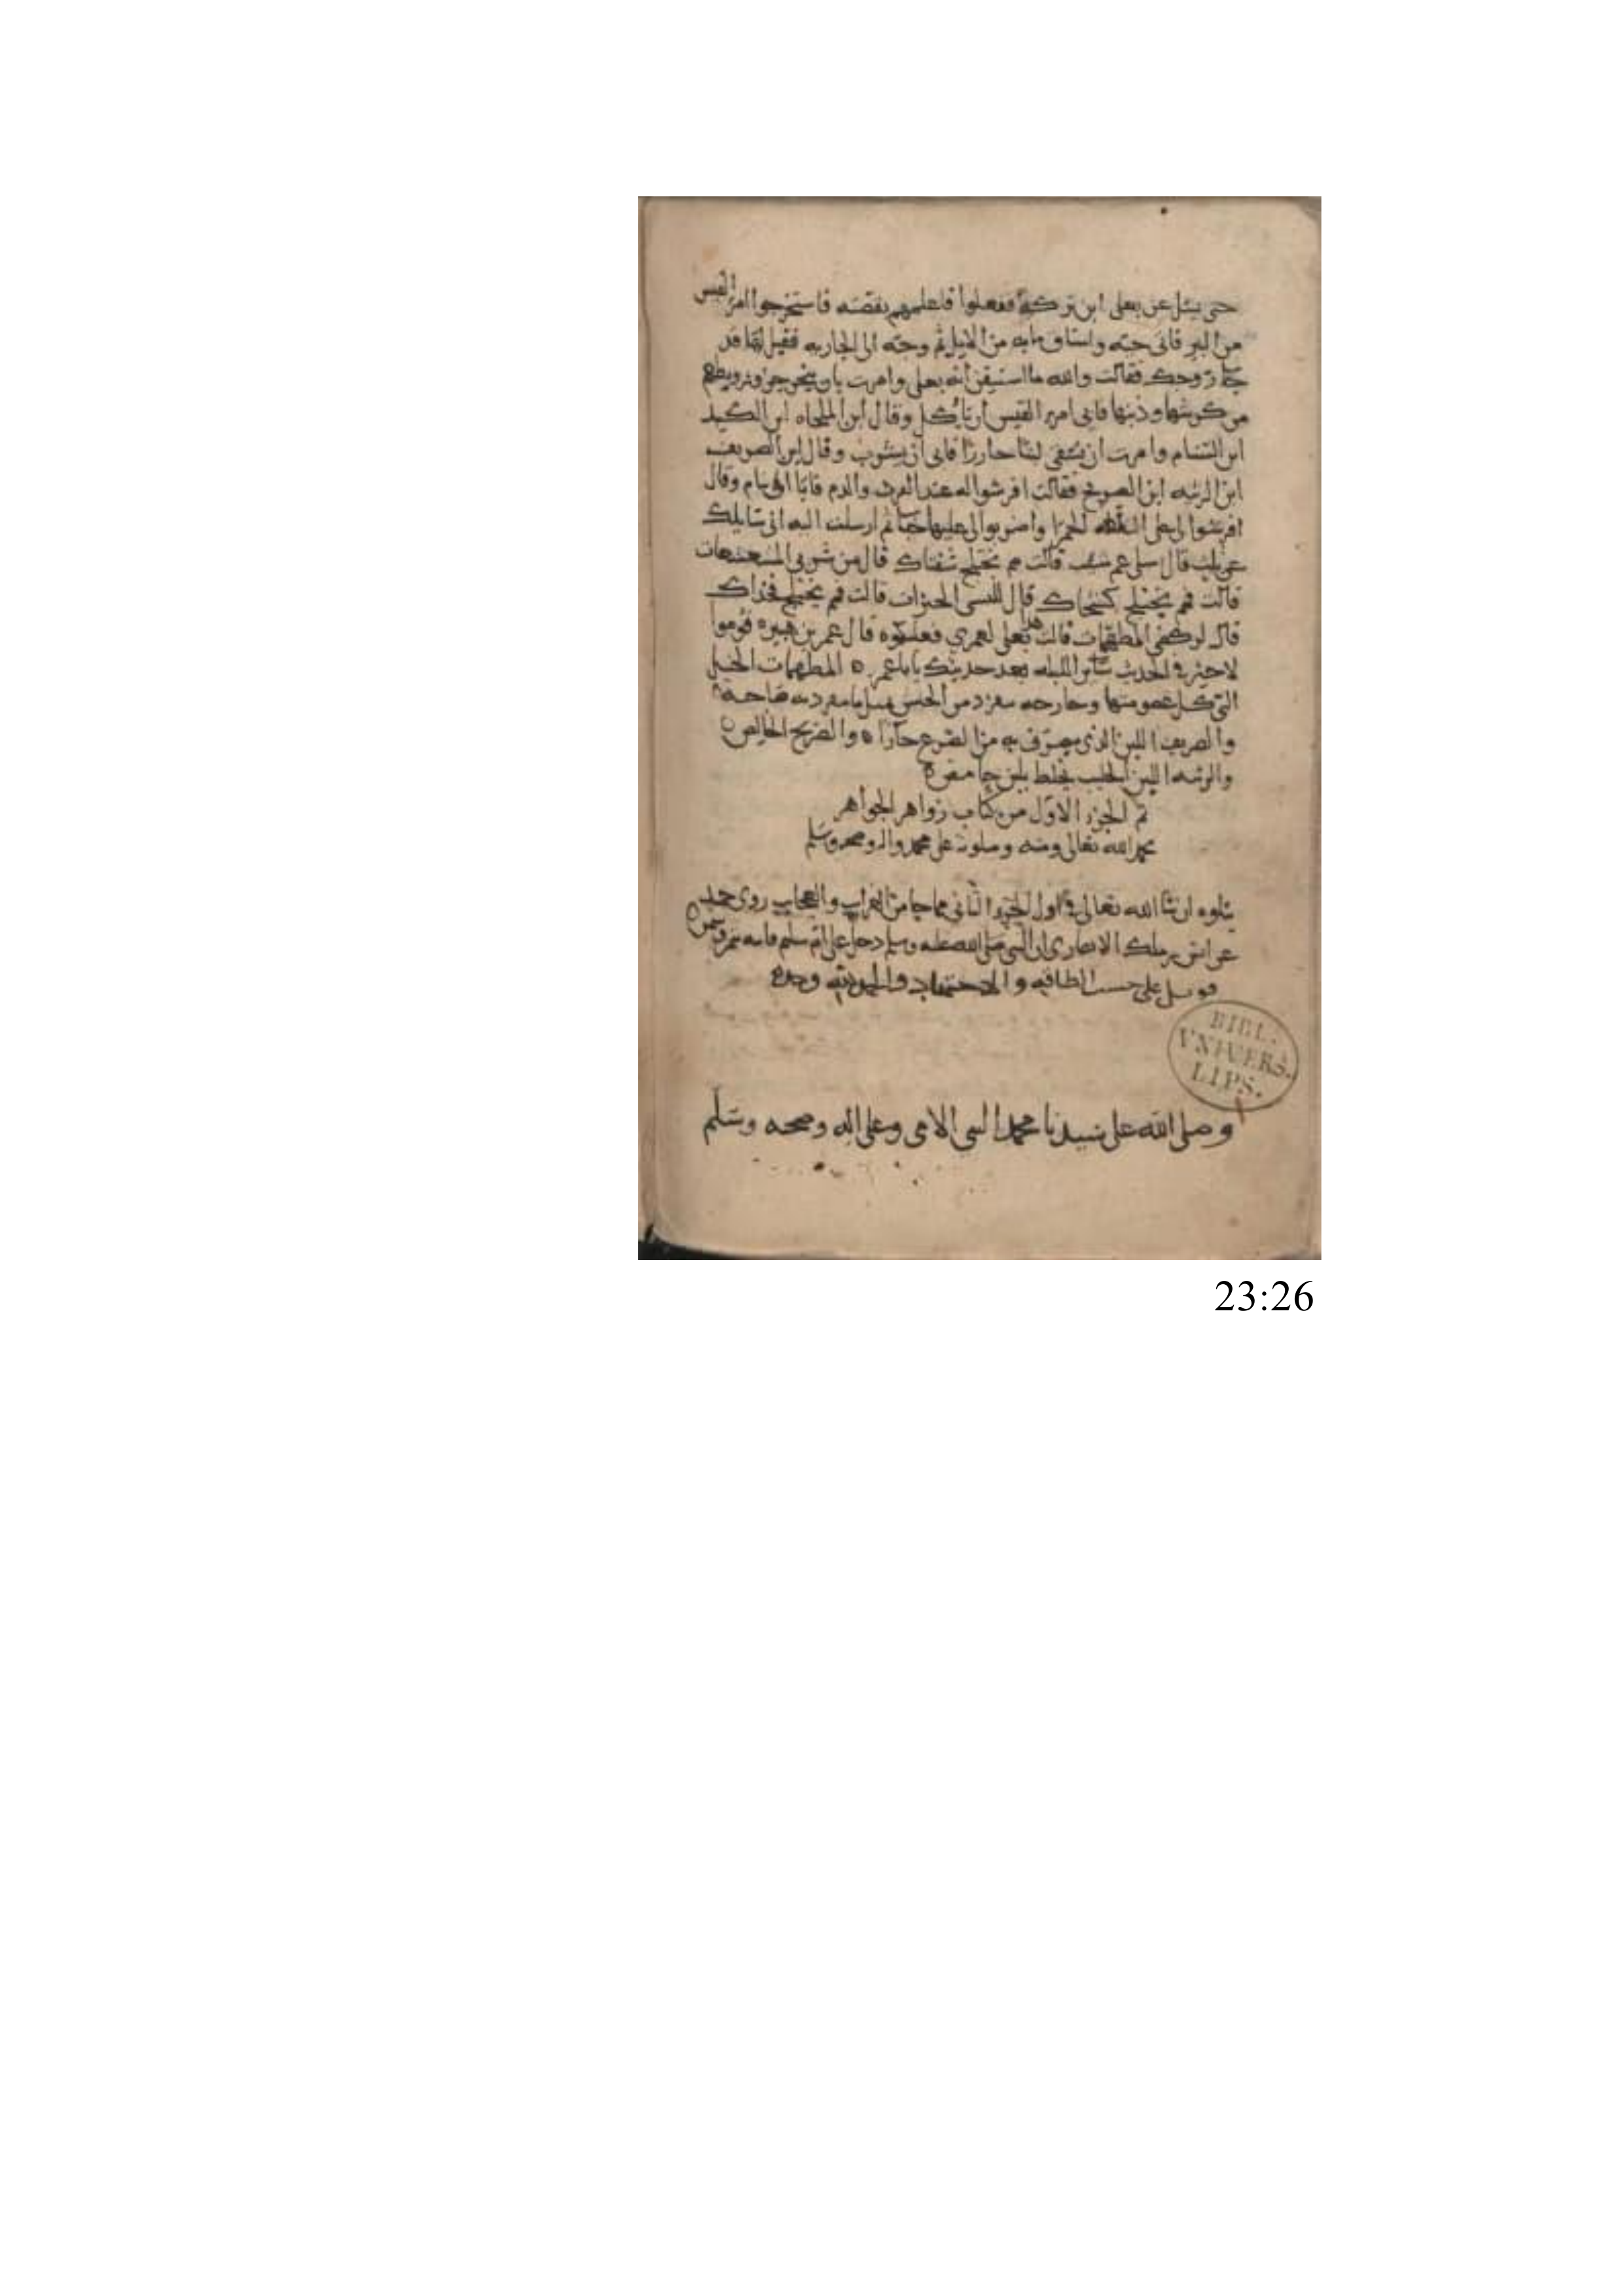 حتى يسئل عن بعلى اين تركه ففعلوا فاعلمهم بقصته فاستخرجوا امرا القيس
من البير فاتى حيه واستاق مايه من الابل ثم وجه الى الجاريه فقيل لها قد
جا زوجك فقالت والله ما استيقن انه بعلى وامرت بان ينحر جزور ويطعم
من كرشها وذنبها فابى امرو القيس ان ياكل وقال اين الملحاه اين الكبد
اين السنام وامرت ان يسقى لبنا حازرا فابى ان يشرب وقال اين الصريف
اين الرثيه اين الصريح فقالت افرشوا له عند الفرث والدم فابا ان ينام وقال
افرشوا لى على التلعه الحمرا واضربوا لى عليها خبا ثم ارسلت اليه انى سايلك
عن ثلث قال سلى عم شئت قالت مم تختلج شفتاك قال من شربى المشعشعات
قالت فمم يختلج كشحاك قال للبسى الحبرات قالت فمم يختلج فخذاك
قال لركضى المطهمات قالت هذا بعلى لعمرى فعليكموه قال عمر بن هبيره قوموا
لا خير فى الحديث ساير الليله بعد حديثك يابا عمر ه المطهمات الخيل
التى كل عضو منها وجارحه
والصريف اللبن الذى ينصرف به من الضرع حارا ه والصريح الخالص ه
والرثيه اللبن الحليب يخلط بلبن حامض ه
تم الجزء الاول من كتاب زواهر الجواهر
بحمد الله تعالى ومنه وصلوته على محمد واله وصحبه وسلم
يتلوه ان شا الله تعالى فى اول الجزء الثانى مما جا من الغرايب والعجايب روى حميد
عن انس بن ملك الانصارى ان النبى صلى الله عليه وسلم دخل على ام سليم فاتته بتمر وسمن ه
قوبل على حسب الطاقه والاجتهاد والحمد لله وحده
BIBL.
VNIVERS.
LIPS.
وصلى الله على سيدنا محمد النبى الامى وعلى اله وصحبه وسلم
23:26